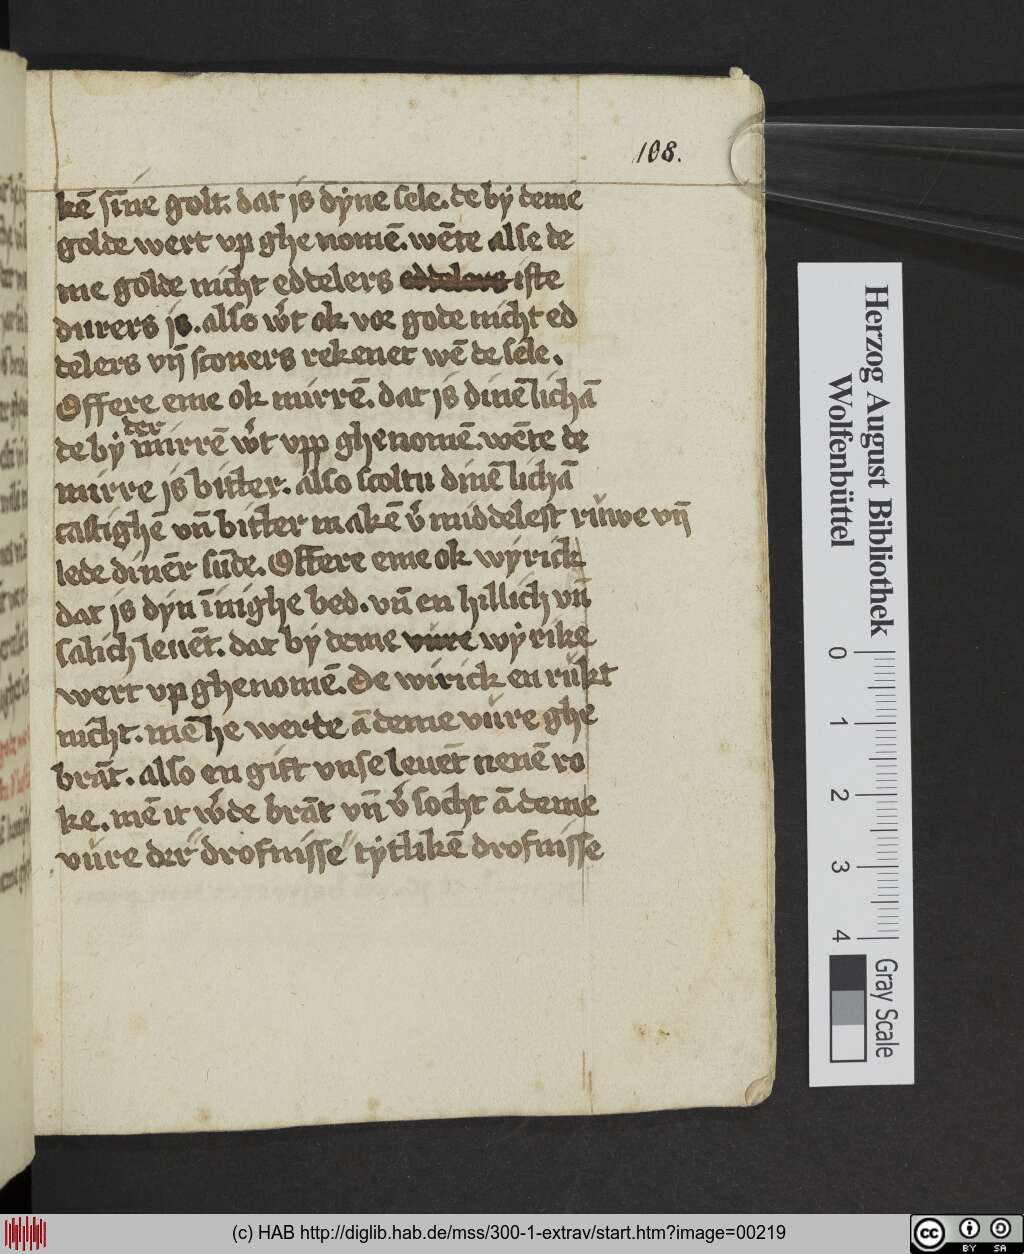 108.
kē sīne golt. dat is dyne sele. de by deme
golde wert vp ghe nomē. wēte alse de
me golde nicht eddelers eddelers iste
durers is. also w̄t ok vor gode nicht ed
delers vn̄ sconers rekenet wē de sele.
Offere eme ok mirrē. dat is dinē lichā
de by der mirrē w̄t vpp ghenomē. wēte de
mirre is bitter. also scoltu dinē lichā
castighē vn̄ bitter makē v̄middelest rüwe vn̄
lede dinēr sūde. Offere eme ok wyrick
dat is dyn īnighe bed. vn̄ en hillich vn̄
salich leuēt. dat by deme vüre wyrike
wert vp ghenomē. De wirick en rükt
nicht. mē he werde ā deme vüre ghe
brāt. also en gift vnse leuēt nenē ro
ke. mē it w̄de brāt vn̄ v̄socht ā deme
vüre der drofnisse tytlikē drofnisse
Herzog August Bibliothek
Wolfenbüttel
0 1 2 3 4
Gray Scale
(c) HAB http://diglib.hab.de/mss/300-1-extrav/start.htm?image=00219
cc BY SA